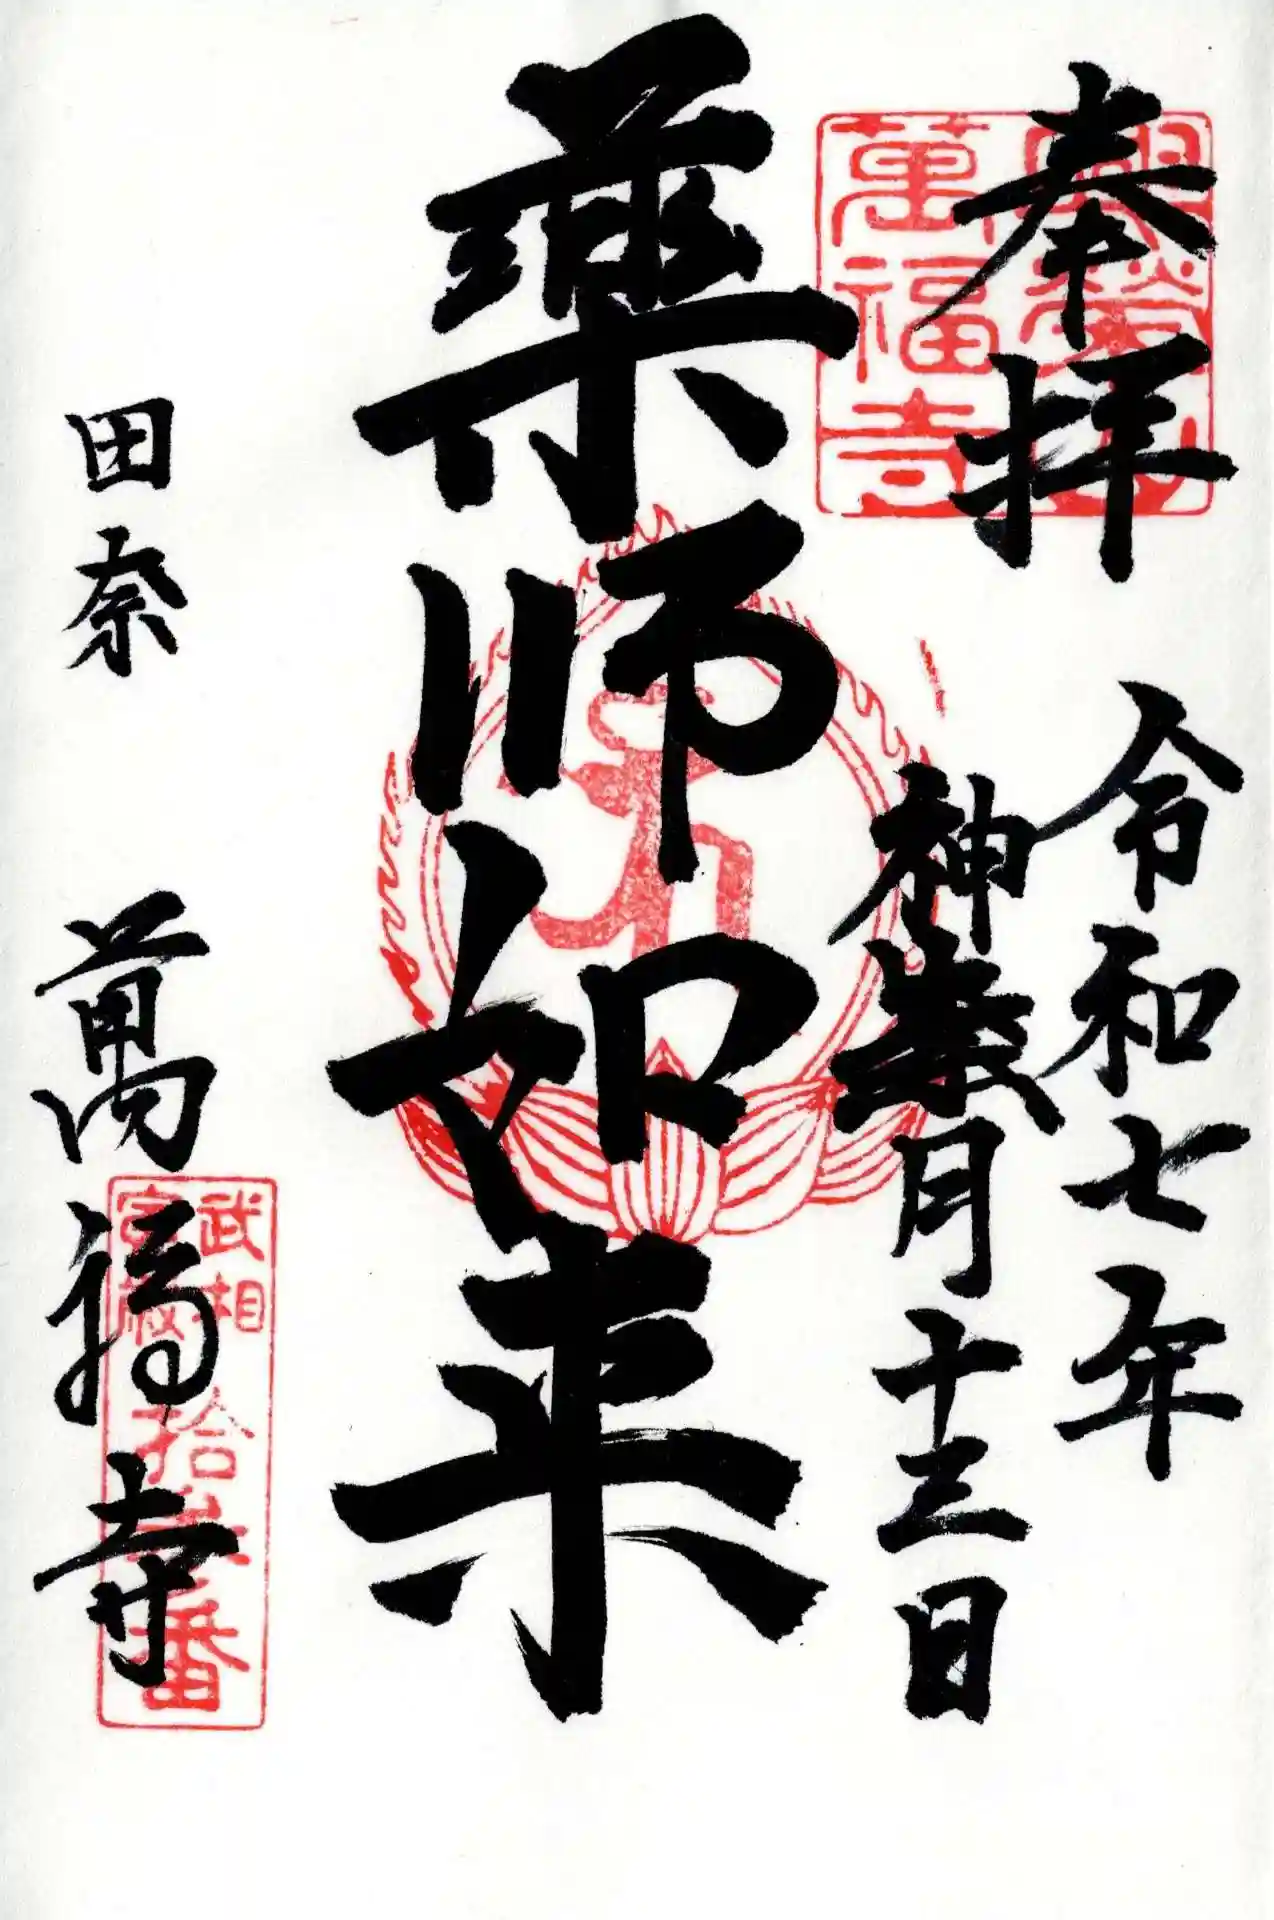 奉拝
令和七年
神 月十三日
薬師如来
田奈 萬福寺
萬福寺
武相
拾 番